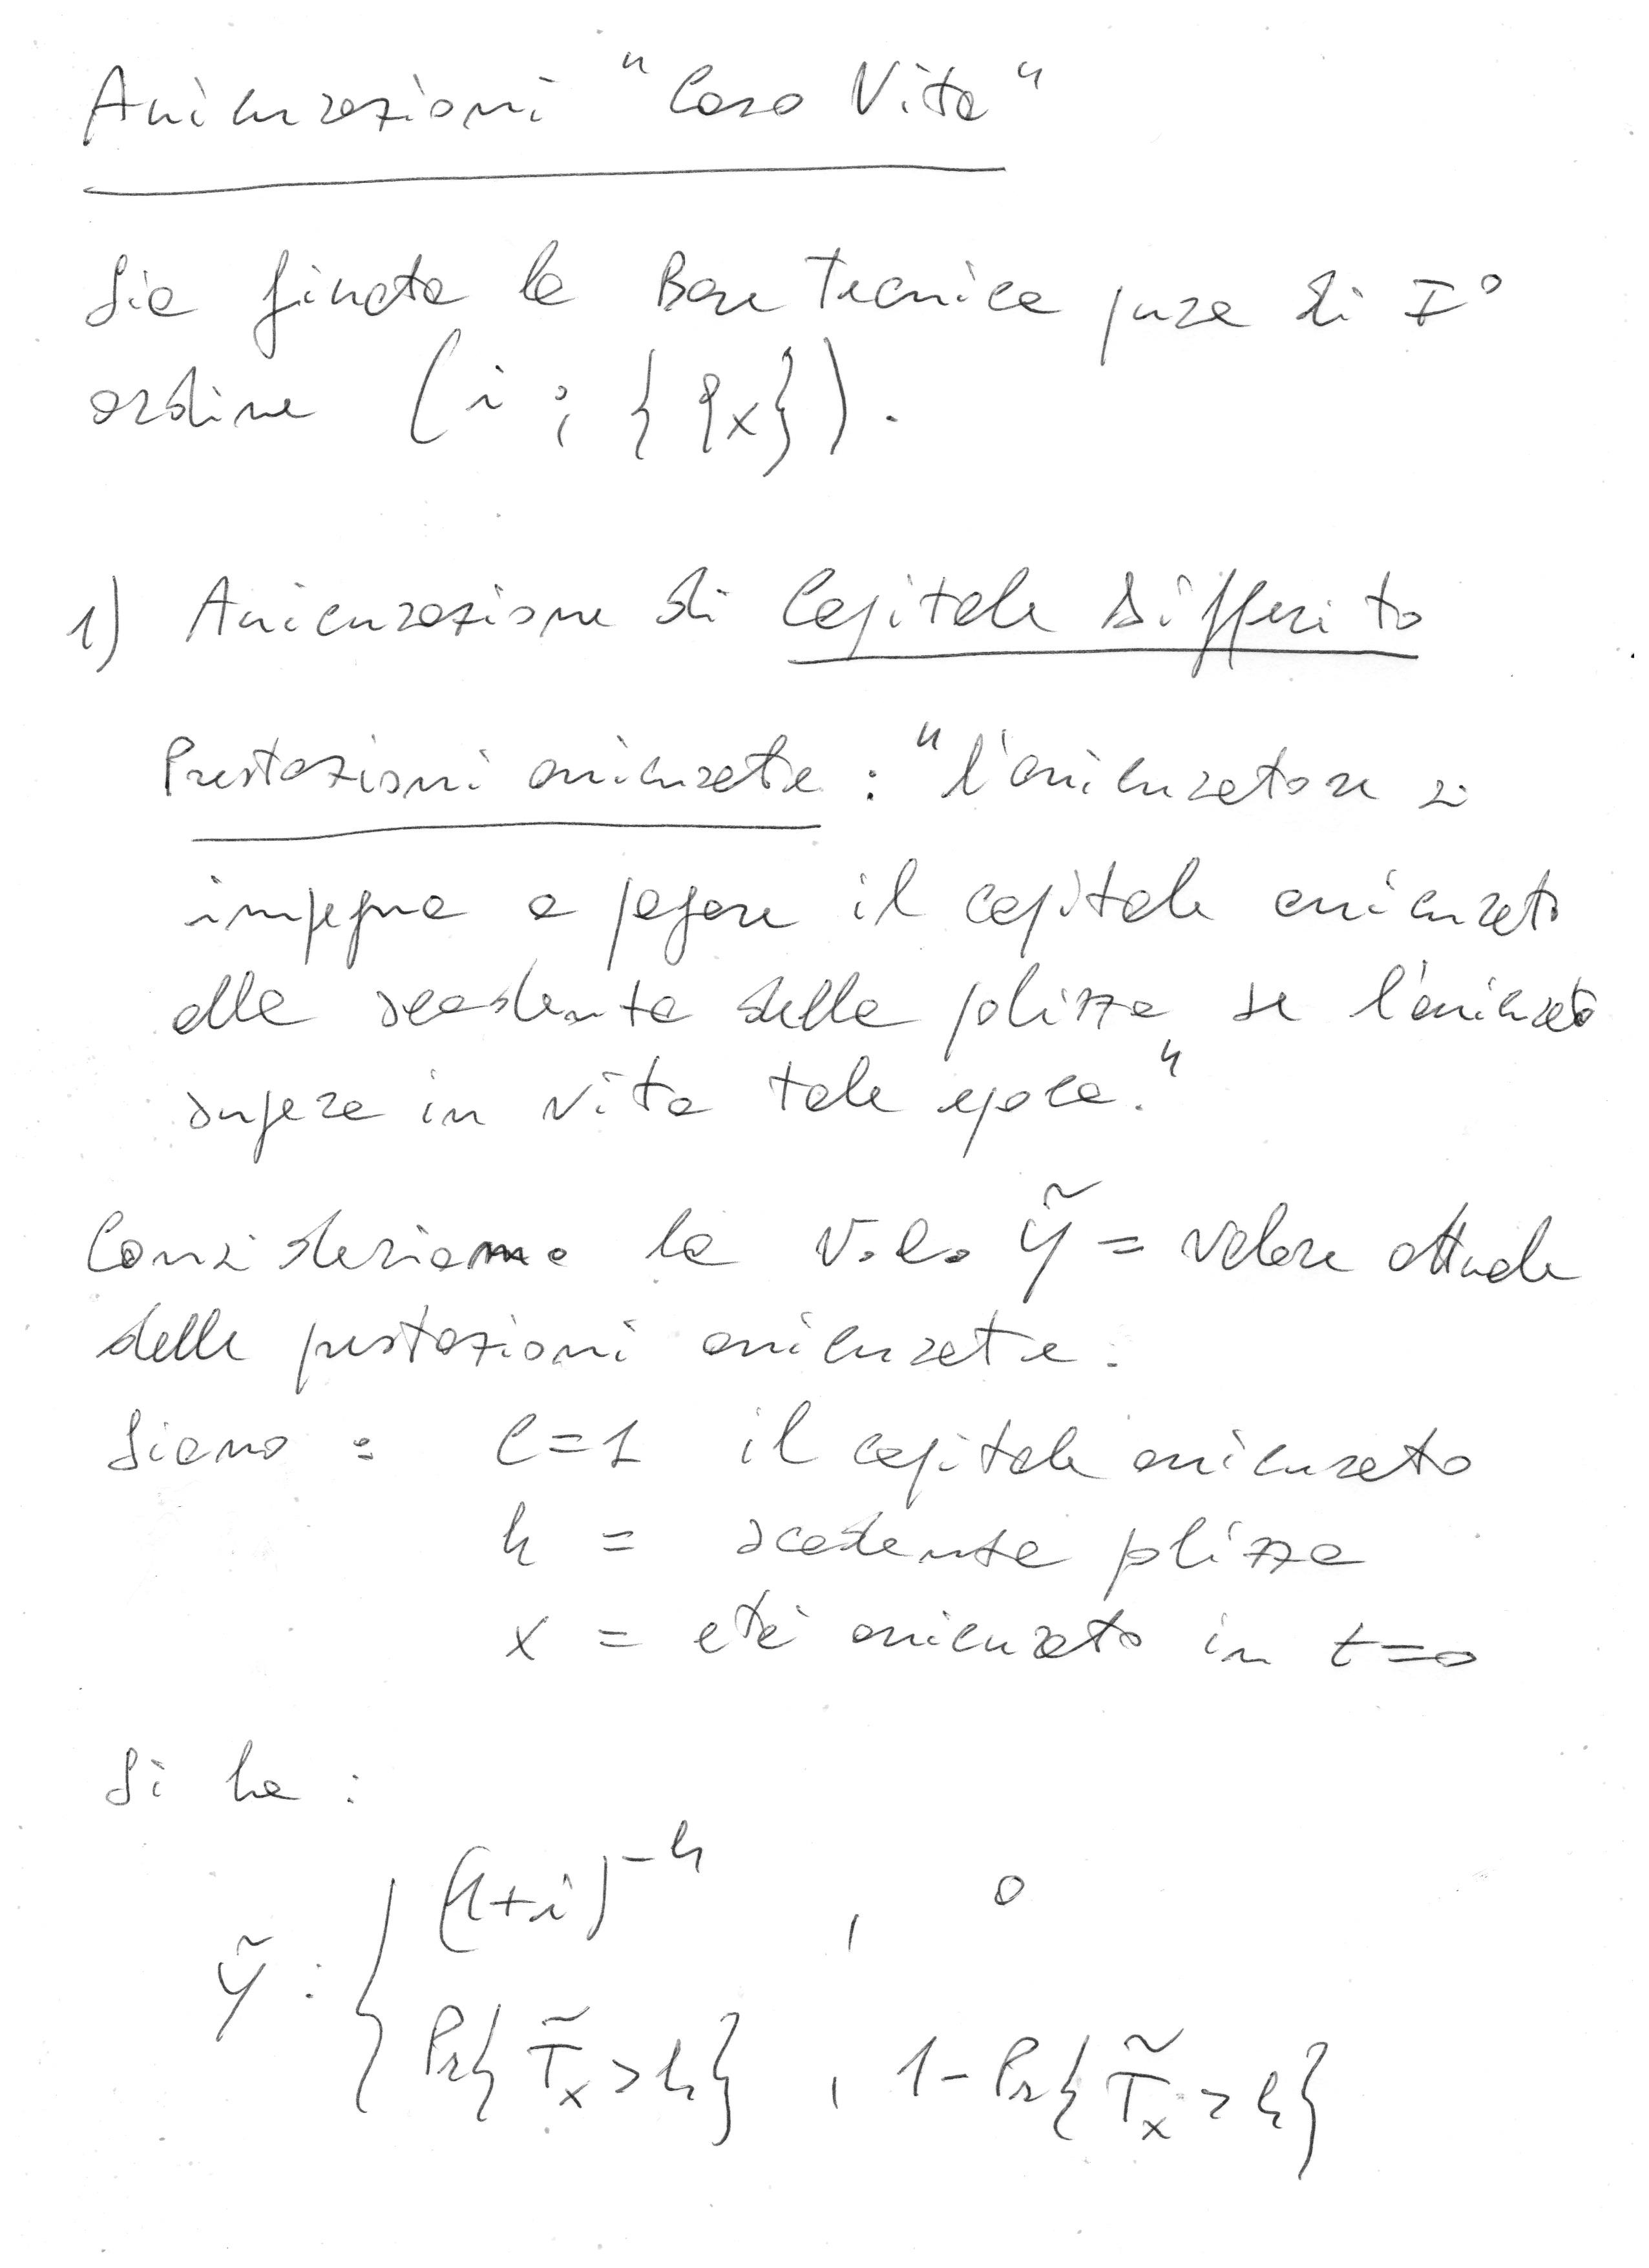 Assicurazioni "Caso Vita"
Sia fissata la Base Tecnica pura di I°
ordine (i ; {qx}).
1) Assicurazione di Capitale Differito
Prestazioni assicurate : "l'assicuratore si
impegna a pagare il capitale assicurato
alla scadenza della polizza se l'assicurato
supera in vita tale epoca."
Consideriamo la v.a. Ỹ = valore attuale
delle prestazioni assicurate.
Siano : C=1 il capitale assicurato
h = scadenza polizza
x = età assicurato in t=0
Si ha :
(1+i)^-h , 0
Ỹ : {
Pr{T̃x>h} , 1-Pr{T̃x>h}